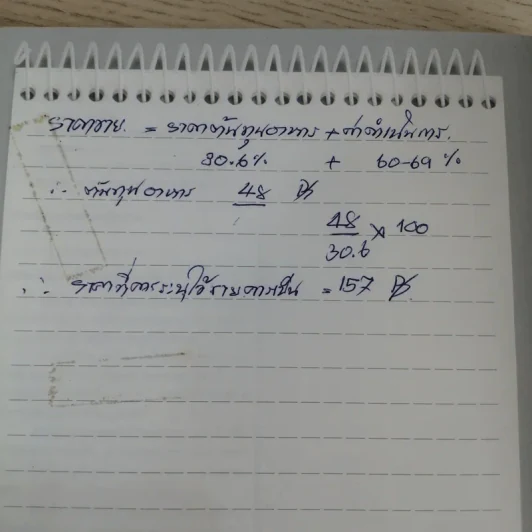 ราคาขาย. = ราคาต้นทุนอาหาร + ค่าดำเนินการ.
30.6% + 60-69 %
∴ ต้นทุนอาหาร 48 ฿
48/30.6 × 100
∴ ราคาที่ควรระบุไว้รายการเป็น = 157 ฿.